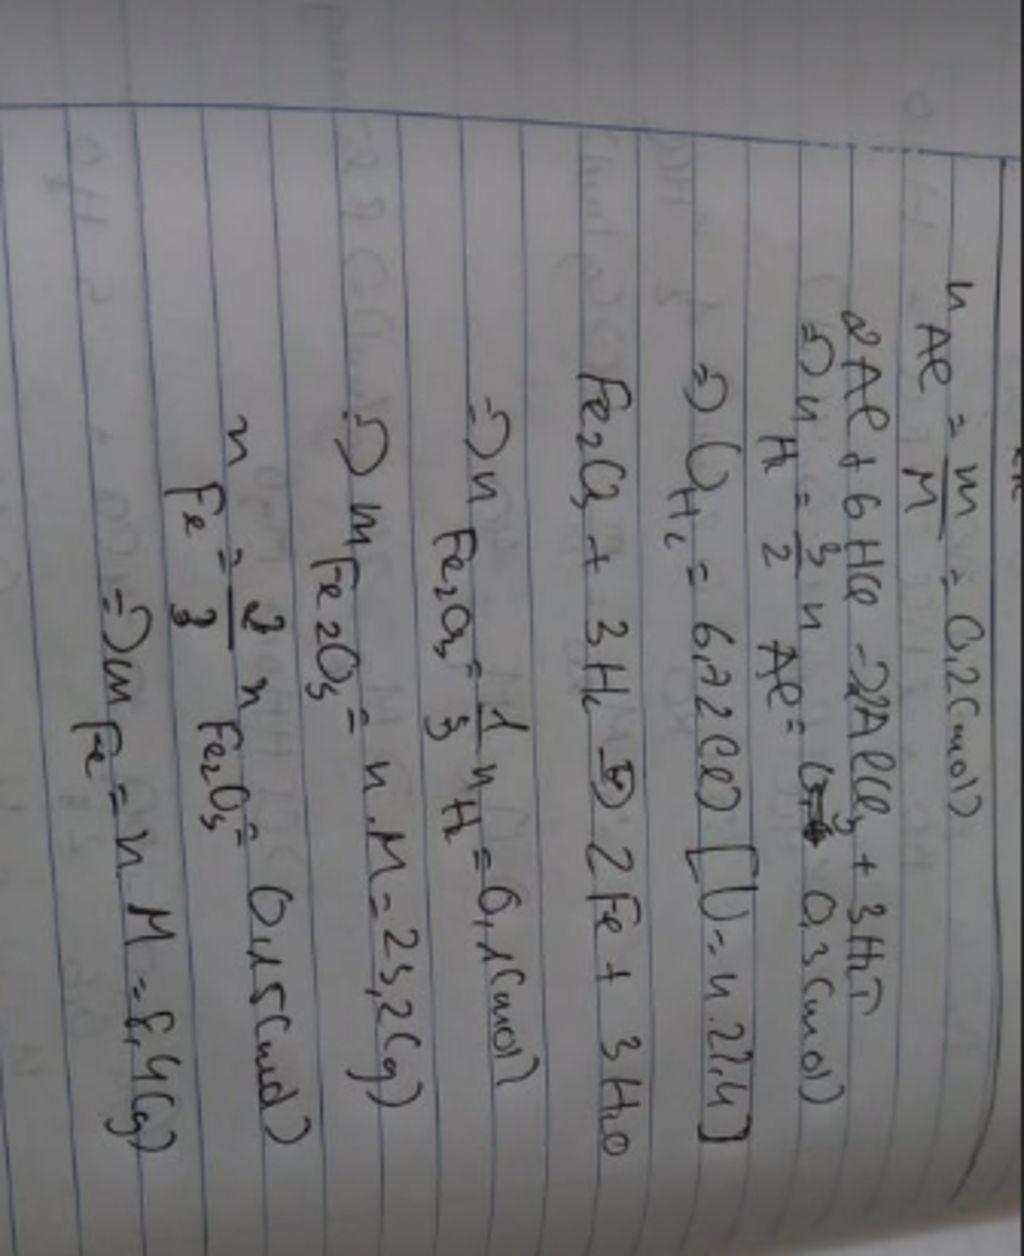 n Al = m/M = 0,2(mol)
2Al + 6HCl → 2AlCl3 + 3H2↑
=> n H2 = 3/2 n Al = 0,3(mol)
=> V H2 = 6,72(l) [V = n.22,4]
Fe2O3 + 3H2 → 2Fe + 3H2O
=> n Fe2O3 = 1/3 n H2 = 0,1(mol)
=> m Fe2O3 = n.M = 23,2(g)
n Fe = 2/3 n Fe2O3 = 0,15(mol)
=> m Fe = n.M = 8,4(g)